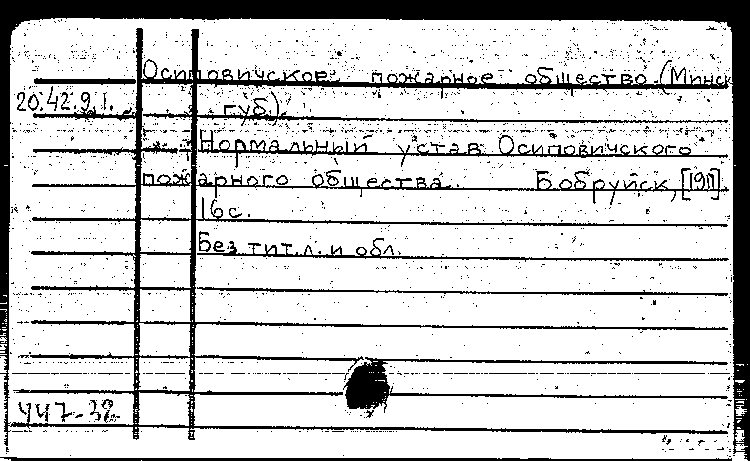 Осиповичское пожарное общество (Минск.
20.42.9.1.
губ.).
Нормальный устав Осиповичского
пожарного общества. Бобруйск, [1911].
16 с.
Без тит. л. и обл.
447-32